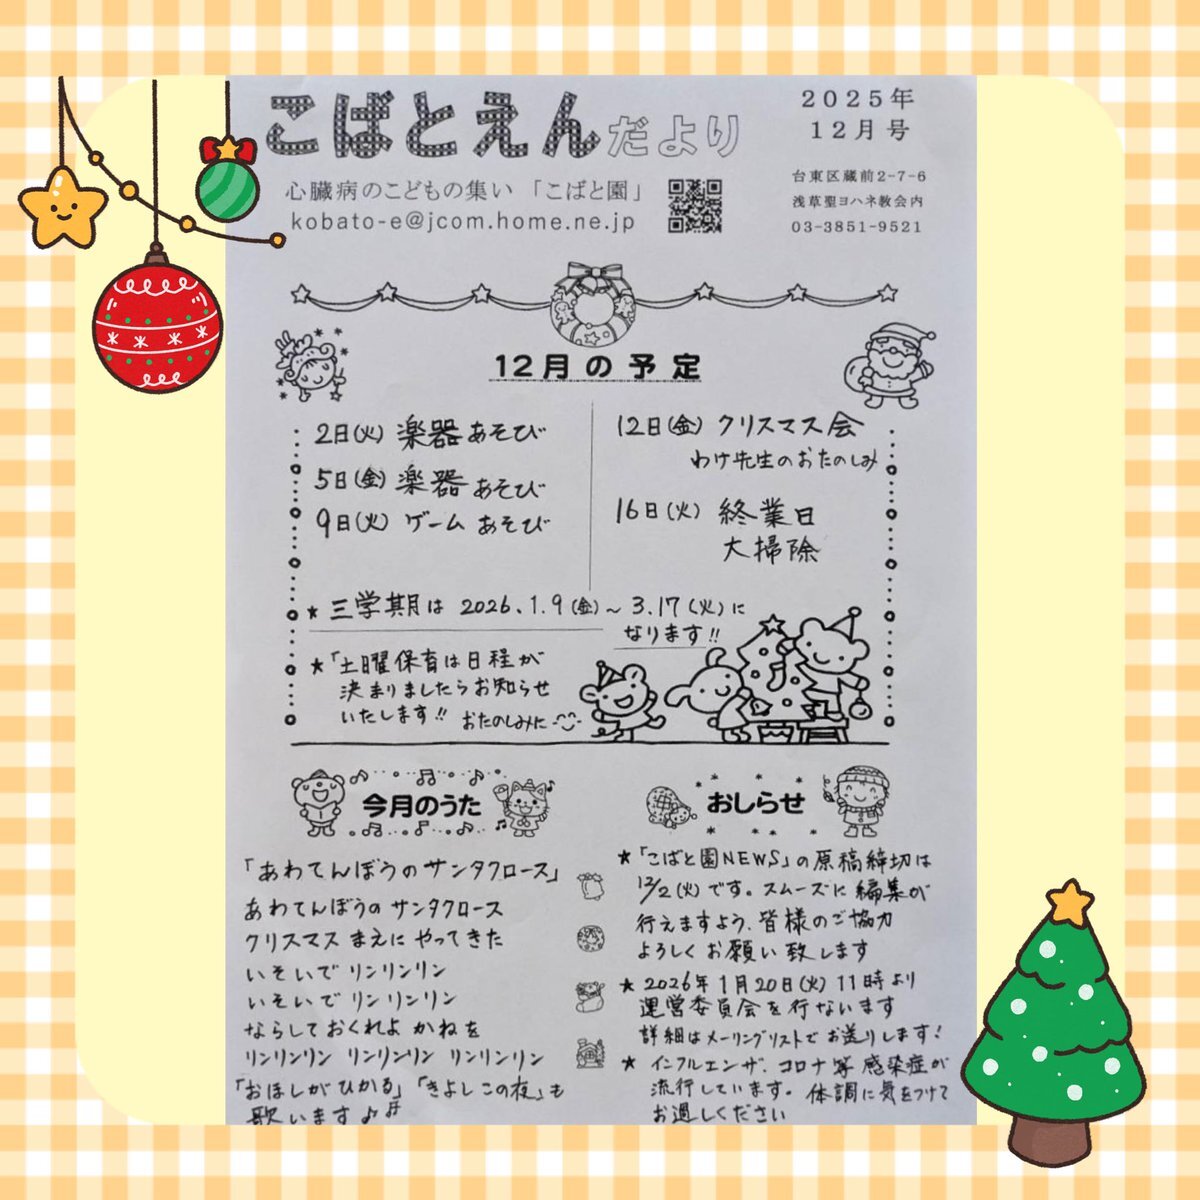 こばとえんだより
2025年
12月号
心臓病のこどもの集い「こばと園」
kobato-e@jcom.home.ne.jp
台東区蔵前2-7-6
浅草聖ヨハネ教会内
03-3851-9521
12月の予定
2日(火) 楽器あそび
5日(金) 楽器あそび
9日(火) ゲームあそび
12日(金) クリスマス会
わけ先生のおたのしみ
16日(火) 終業日
大掃除
★ 三学期は 2026.1.9(金)～3.17(火)に
なります!!
★「土曜保育は日程が
決まりましたらお知らせ
いたします!! おたのしみに
今月のうた
「あわてんぼうのサンタクロース」
あわてんぼうの サンタクロース
クリスマス まえに やってきた
いそいで リンリンリン
いそいで リンリンリン
ならしておくれよ かねを
リンリンリン リンリンリン リンリンリン
「おほしがひかる」「きよしこの夜」も
歌います♪♬
おしらせ
★「こばと園NEWS」の原稿締切は
12/2(火)です。スムーズに編集が
行えますよう、皆様のご協力
よろしくお願い致します
★ 2026年1月20日(火) 11時より
運営委員会を行ないます
詳細はメーリングリストでお送りします!
★ インフルエンザ、コロナ等感染症が
流行しています。体調に気をつけて
お過しください